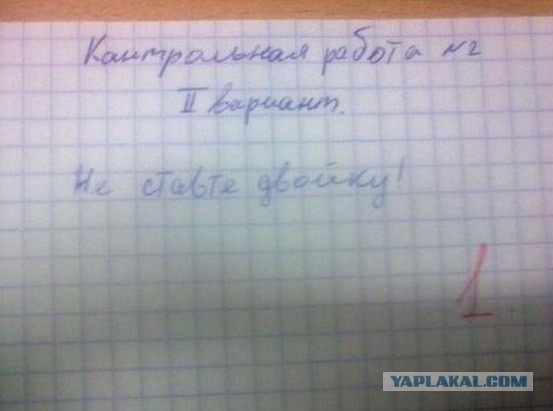 Контрольная работа №2
II вариант.
Не ставте двойку!
1.
YAPLAKAL.COM